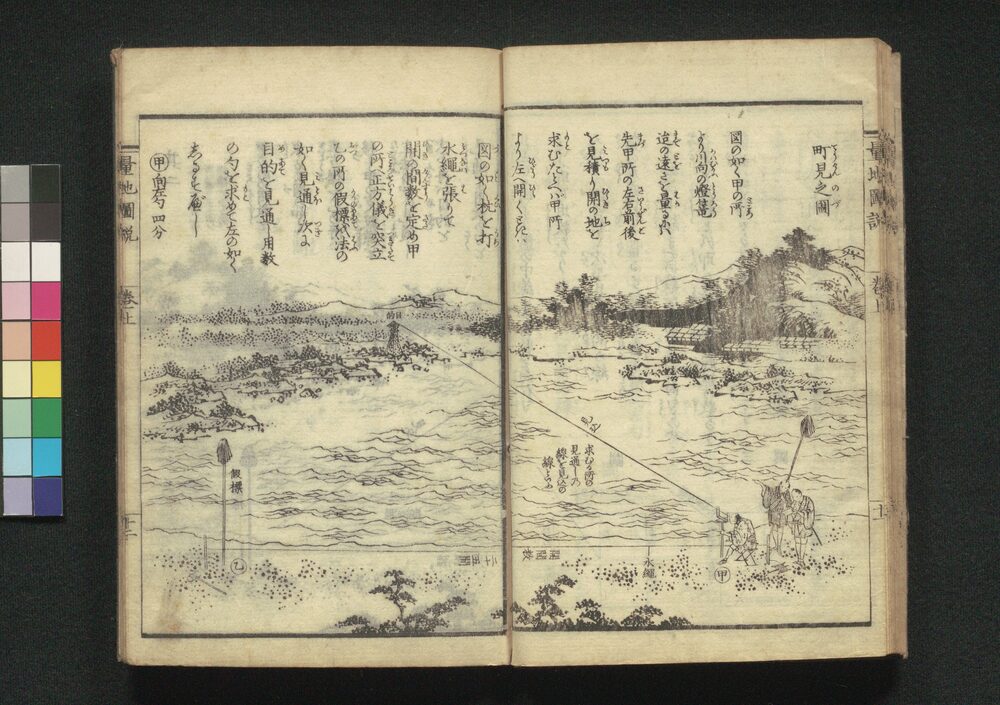 量地圖説
卷上
十一
町見之圖
図の如く甲の所
より川向の燈篭
迠の遠さを量るには
先甲所の左右前後
を見積り開の地を
求むたとへば甲所
より左へ開くときは
図の如く杭を打
水繩を張りて
開の間数を定め甲
の所正方儀を突立
乙の所の假標を法の
如く見通し次に
目的を見通し用数
の勺を求めて左の如く
しるすべし
甲 四分
目的
見込
求むる所の
見通しの
線を見込の
線といふ
甲
水繩
開間数
二十五間
假標
乙
量地圖説
卷上